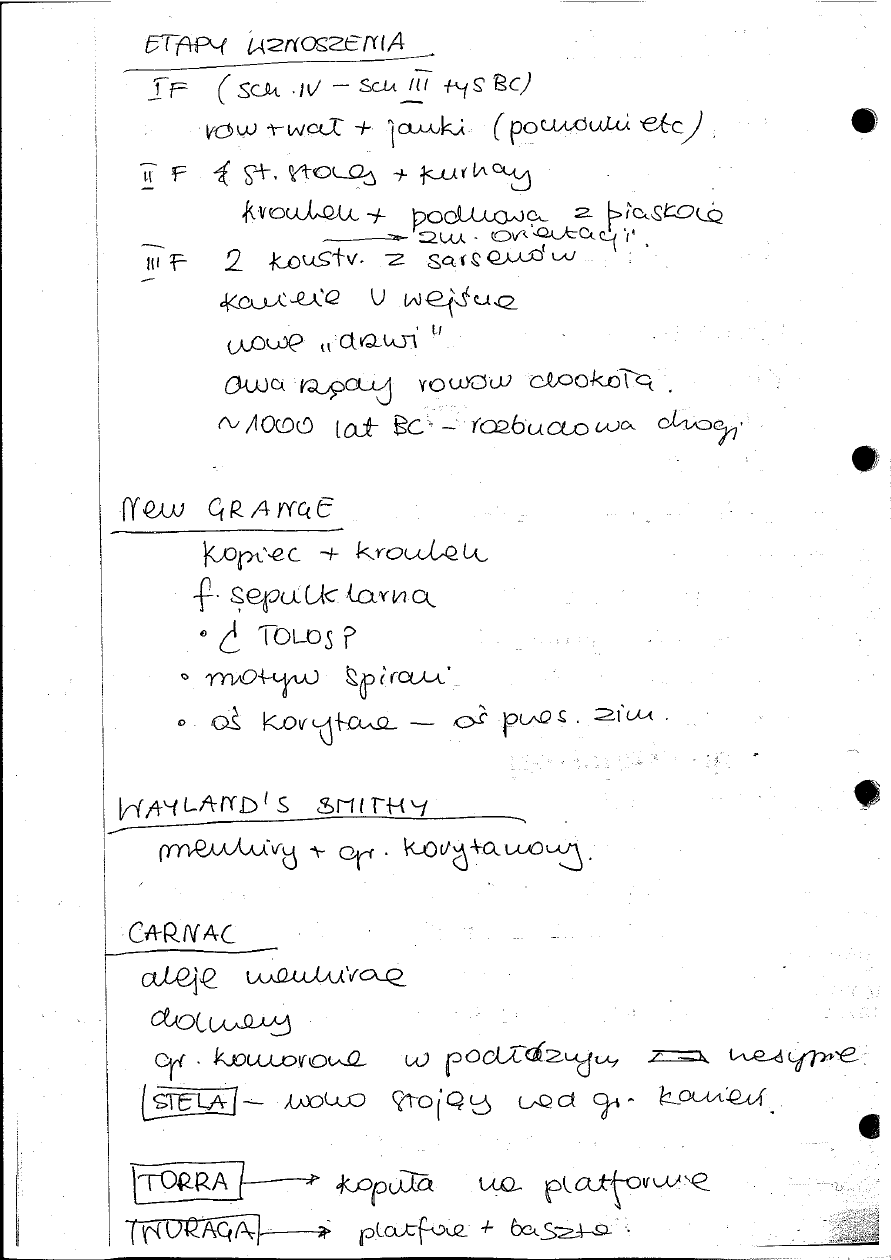 ETAPY WZNOSZENIA
I F (sch. IV – sch III tys BC)
rów + wał + jamki (pochówki etc)
II F st. stojący + kurhany
kromlech + podkowa z piaskowca
→ zm. orientacji.
III F 2 konstr. z sarsenów
kamienie U wejścia
nowe „drzwi"
dwa rzędy rowów dookoła.
~1000 lat BC – rozbudowa drogi
NEW GRANGE
kopiec + kromlech
f. sepulklarna
TOLOSP
• motyw spirali
• oś korytarza – oś przes. zim.
WAYLAND'S SMITHY
menhiry + gr. korytarzowy.
CARNAC
aleje menhirów
dolmeny
gr. komorowe w podłużnym nasypie
STELA – wolno stojący nad gr. kamień.
TORRA → kopuła na platformie
NURAGA → platforma + baszta.